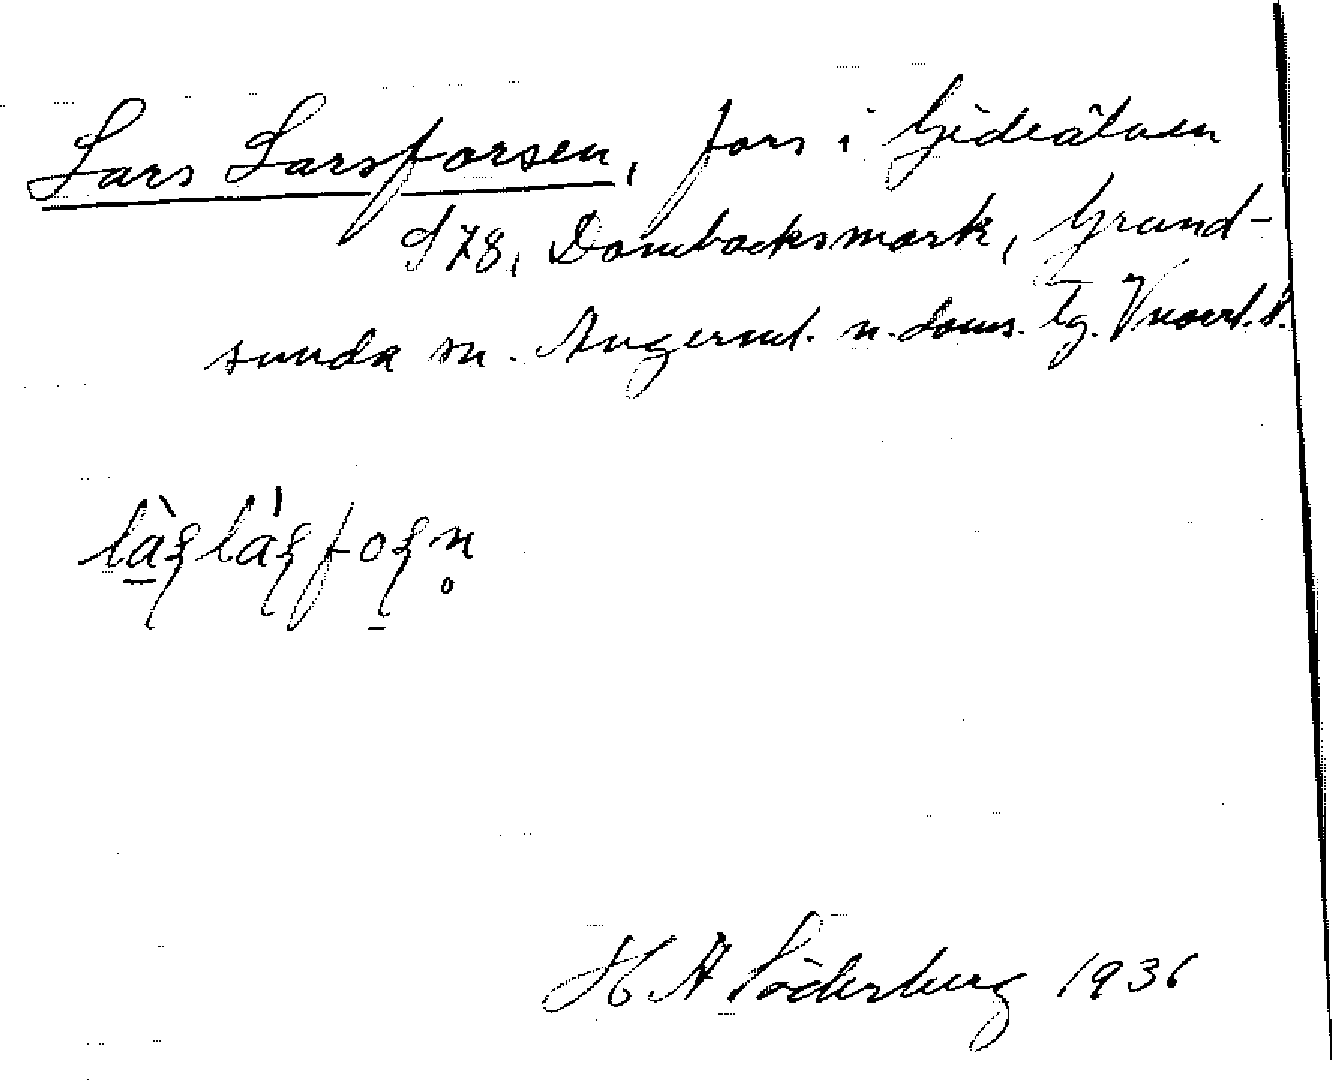 Lars Larsforsen, fors i Gideälven
S78, Dombäcksmark, Grund-
sunda sn. Ångerml. n. doms. tg. Vnorrl. l.
làʂláʂfoʂn̥
H A Söderberg 1936